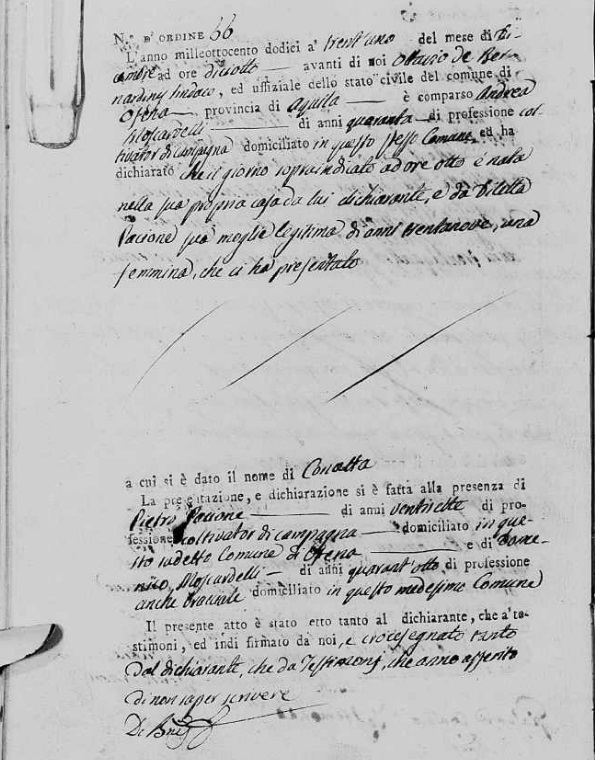 N.° D'ORDINE 66
L'anno milleottocento dodici a' trent'uno del mese di Di-
cembre ad ore diciotto avanti di noi Ottavio de Ber-
nardinij sindaco, ed uffiziale dello stato civile del comune di
Ofena provincia di Aquila è comparso Andrea
Moscardelli di anni quaranta di professione col-
tivator di campagna domiciliato in questo stesso Comune, ed ha
dichiarato che il giorno sopraindicato ad ore otto è nata
nella sua propria casa da lui dichiarante, e da
Pacione sua moglie legitima di anni trentanove, una
femmina, che ci ha presentato
a cui si è dato il nome di
La presentazione, e dichiarazione si è fatta alla presenza di
Pietro Pacione di anni ventisette di pro-
fessione coltivator di campagna domiciliato in que-
sto sudetto Comune di Ofena e di Dome-
nico Moscardelli di anni quarant'otto di professione
anche domiciliato in questo medesimo Comune
Il presente atto è stato letto tanto al dichiarante, che a' te-
stimonj, ed indi firmato da noi, e crocesegnato tanto
dal dichiarante, che da Testimonj, che anno asserito
di non saper scrivere